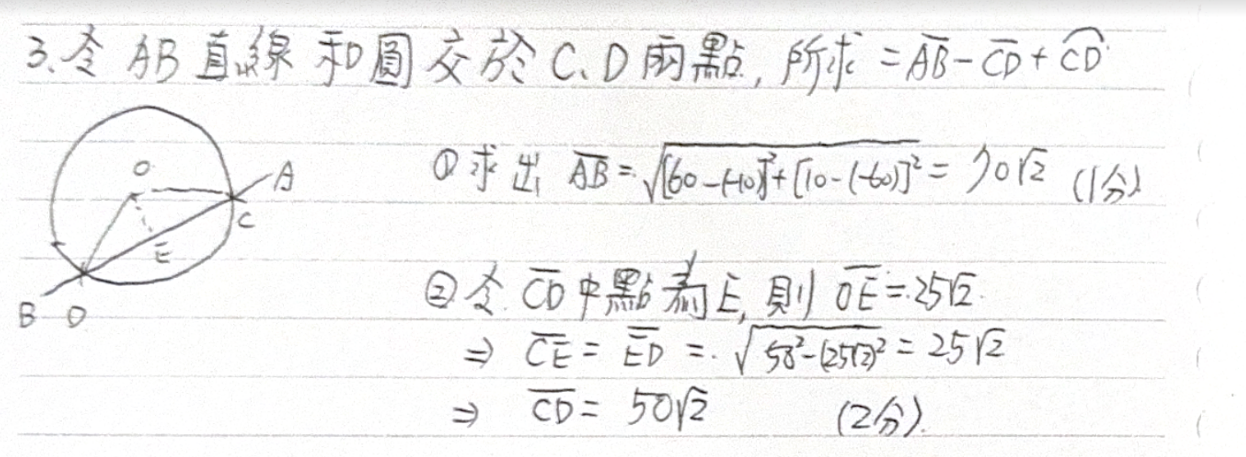 3.令 AB 直線 和圓 交於 C、D 兩點, 所求 = \overline{AB} - \overline{CD} + \overset{\frown}{CD}
O
A
C
E
B D
① 求出 \overline{AB} = √([60-(-10)]²+[10-(-60)]²) = 70√2 (1分)
② 令 \overline{CD} 中點為 E, 則 \overline{OE} = 25√2
⇒ \overline{CE} = \overline{ED} = √(50²-(25√2)²) = 25√2
⇒ \overline{CD} = 50√2 (2分).